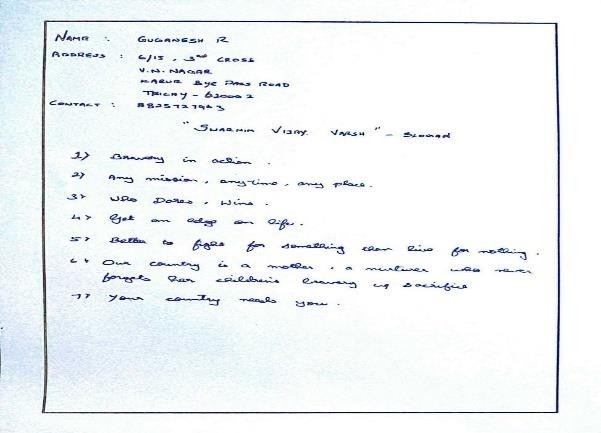 NAME : GUGANESH R
ADDRESS : 6/15, 3rd CROSS
V.N. NAGAR
KARUR BYE PASS ROAD
TRICHY - 620002
CONTACT : 8825727963
"SWARNIM VIJAY VARSH" - SLOGAN
1) Bravery in action.
2) Any mission, any time, any place.
3) Who Dares, Wins.
4) Get an edge on life.
5) Better to fight for something than live for nothing.
6) Our country is a mother, a nurturer who never
forgets her children's bravery & sacrifice
7) Your country needs you.